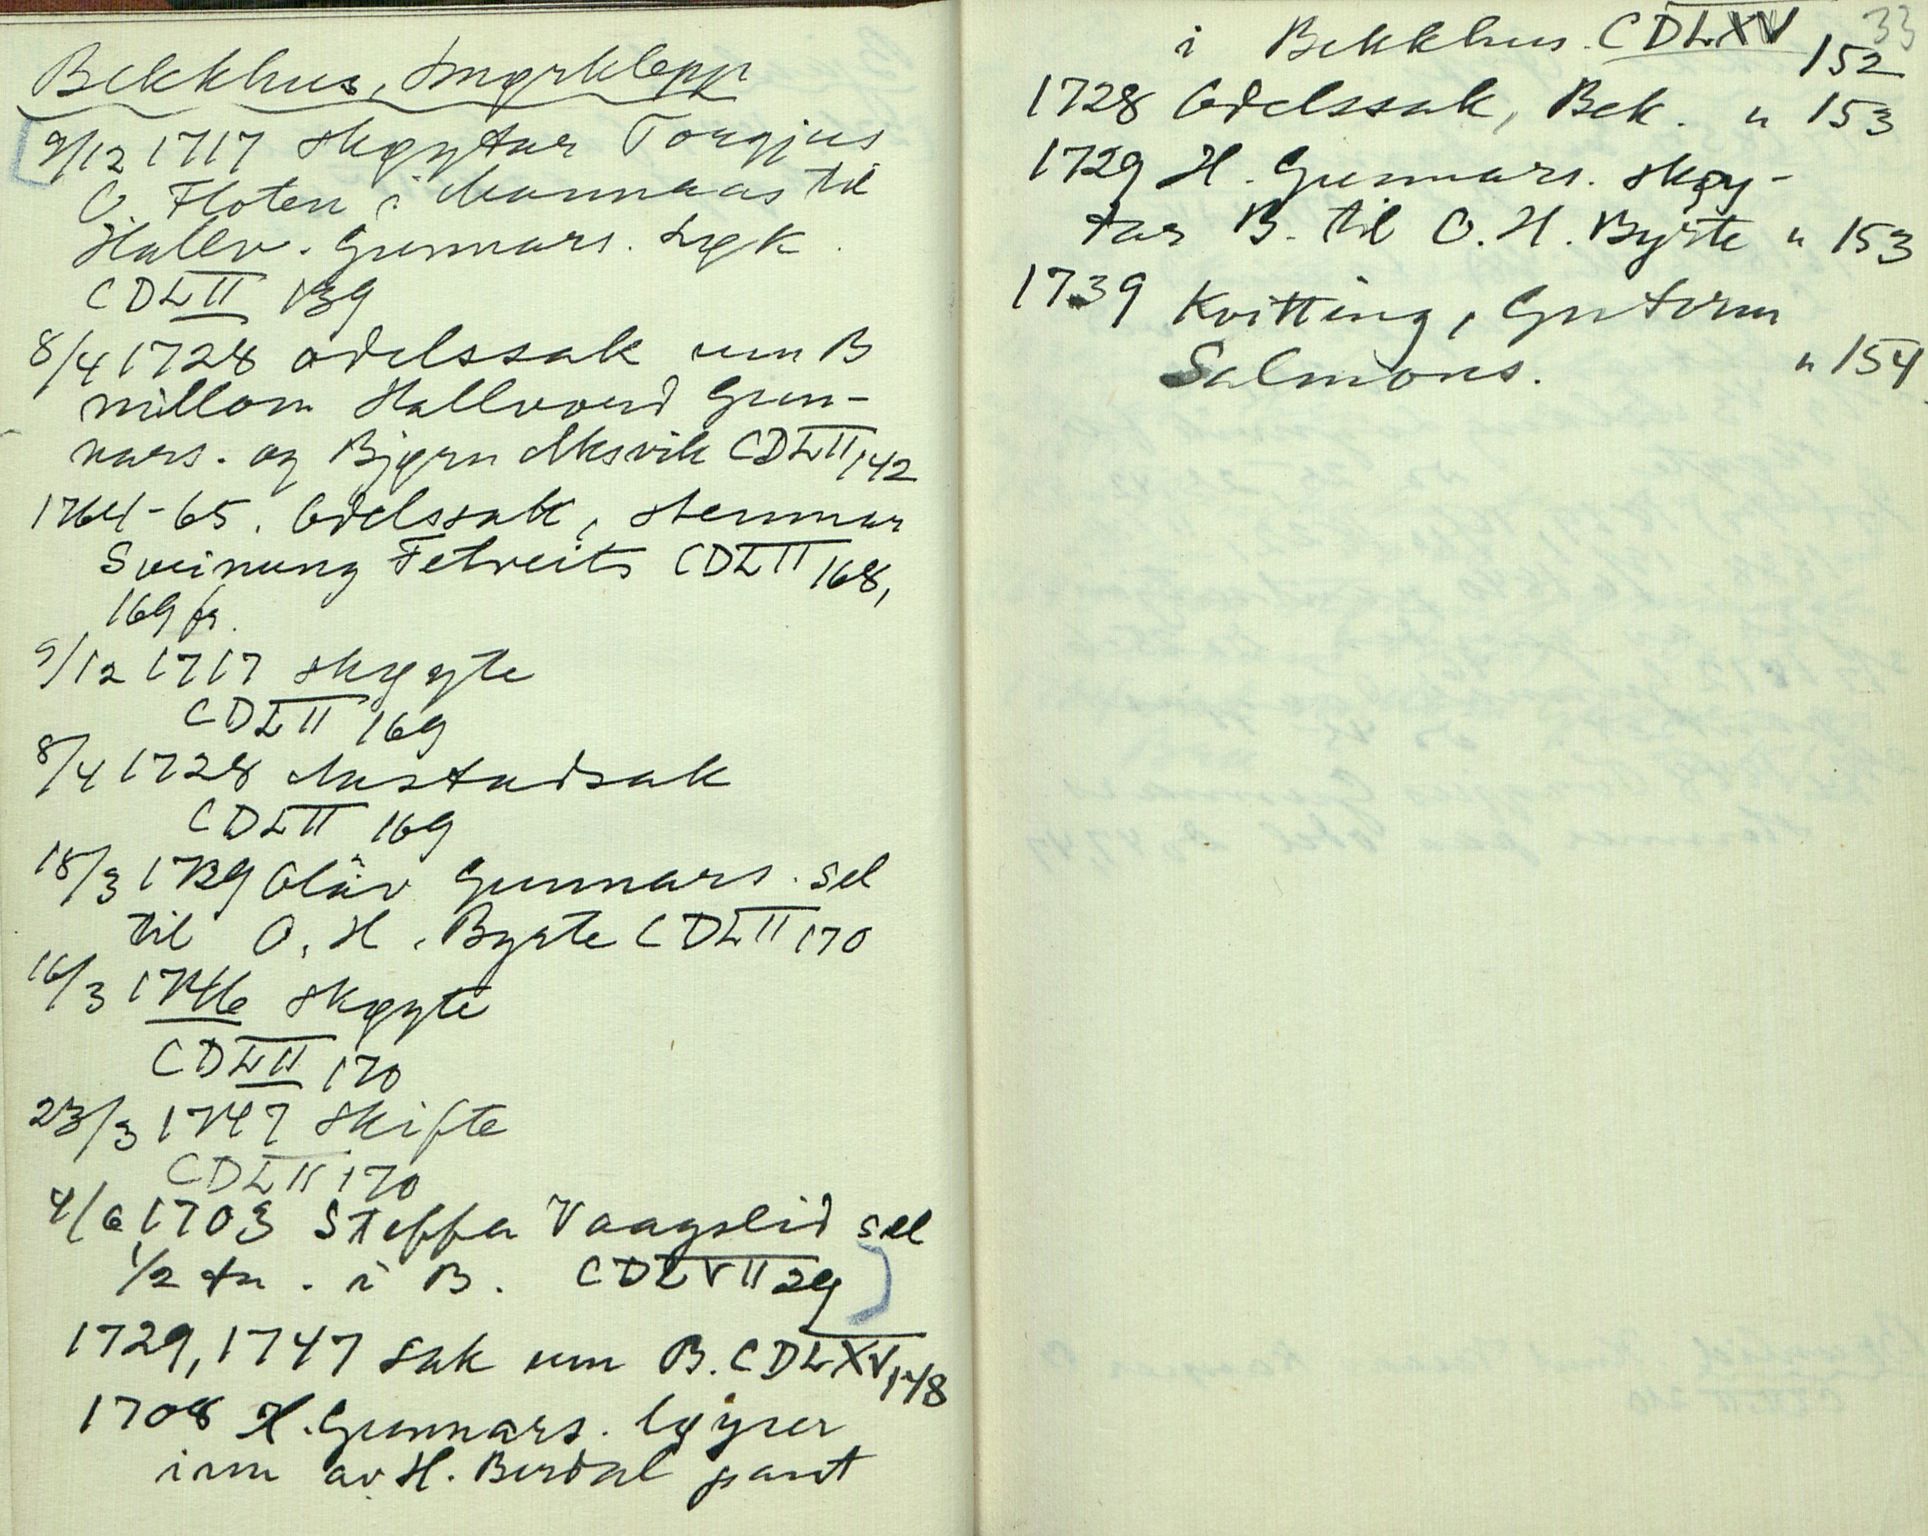 Bekkhus, Smørklepp
9/12 1717 skøytar Torgjus
O. Floten i Mannaas til
Hallv. Gunnars. Løk.
CDLII 139
8/4 1728 odelssak um B
millom Hallvord Gun-
nars. og Bjørn Aksvik CDLII 142
1764-65. Odelssak, stemnar
Sveinung Felveits CDLII 168,
169 fr.
9/12 1717 skøyte
CDLII 169
8/4 1728 Aastadsak
CDLII 169
18/3 1739 Olav Gunnars. sel
til O. H. Byrte CDLII 170
16/3 1746 skøyte
CDLII 170
23/3 1747 skifte
CDLII 170
4/6 1703 Steffa Vaagslid sel
1/2 tn. i B. CDLVII 29
1729, 1747 sak um B. CDLXV, 148
1708 H. Gunnars. løyser
inn av H. Berdal pant
33
i Bekkhus. CDLXV 152
1728 Odelssak, Bek. " 153
1729 H. Gunnars. skøy-
tar B. til O. H. Byrte " 153
1739 Kvitting, Gutorm
Salmons. " 154